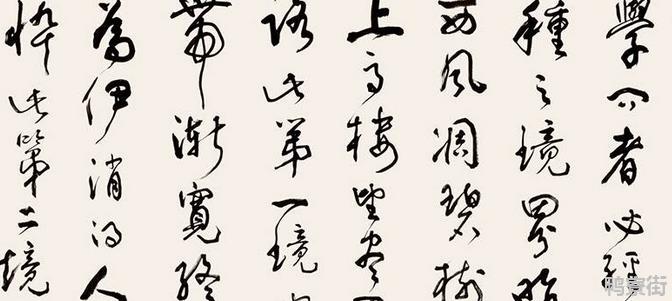 學問者必經
種之境界昨
西風凋碧樹
上高樓望盡
路此第一境
帶漸寬終
為伊消得人
悴此第二境
鸭寮街